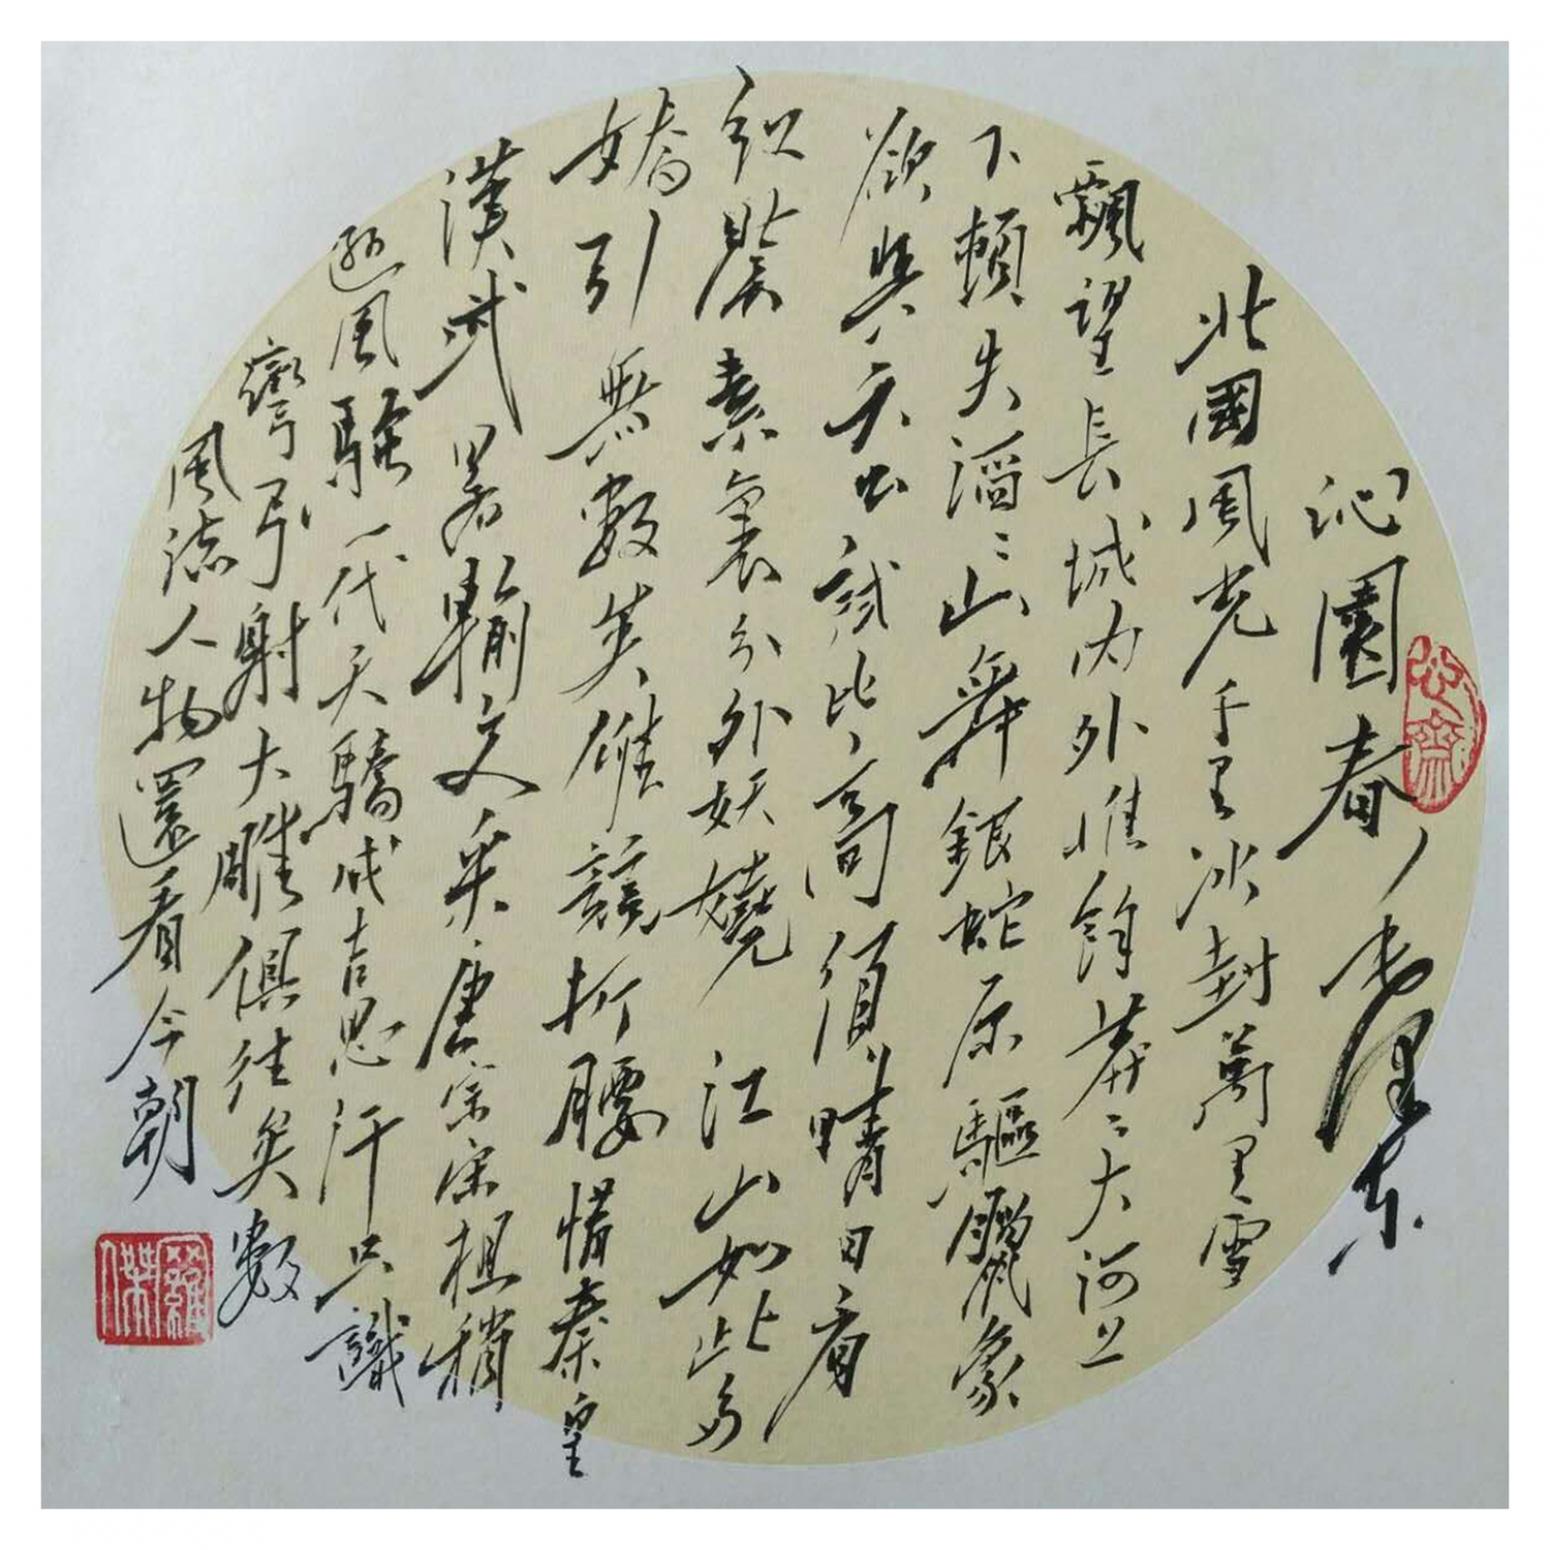 沁園春 毛澤東
北國風光千里冰封萬里雪
飄望長城内外惟餘莽〻大河上
下頓失滔〻山舞銀蛇原驅臘象
欲與天公試比高須晴日看
紅裝素裹分外妖嬈 江山如此多
嬌引無數英雄競折腰惜秦皇
漢武畧輸文采唐宗宋祖稍
遜風騷一代天驕成吉思汗只識
彎弓射大雕俱往矣數
風流人物還看今朝
羅傑